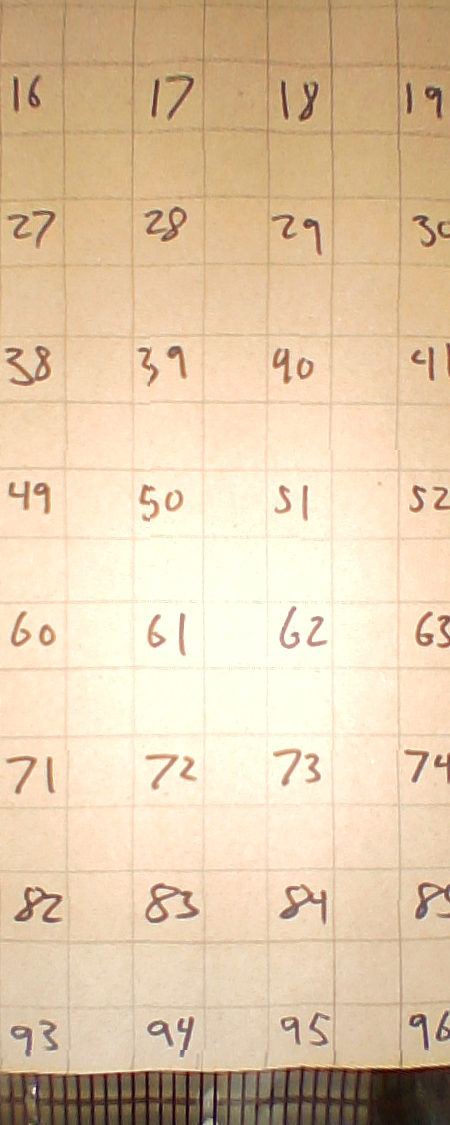 16 17 18 19
27 28 29 30
38 39 40 41
49 50 51 52
60 61 62 63
71 72 73 74
82 83 84 85
93 94 95 96